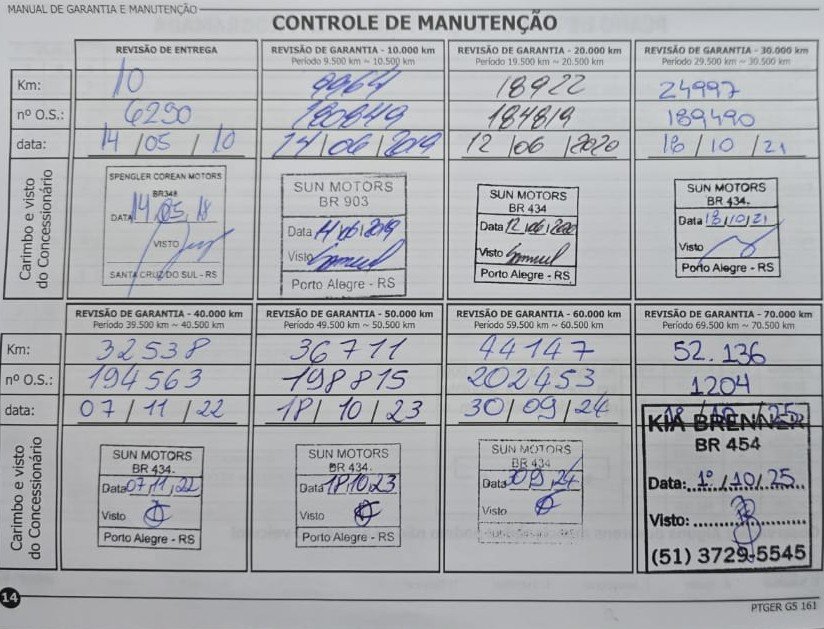 MANUAL DE GARANTIA E MANUTENÇÃO
CONTROLE DE MANUTENÇÃO
REVISÃO DE ENTREGA
REVISÃO DE GARANTIA - 10.000 km
Período 9.500 km ~ 10.500 km
REVISÃO DE GARANTIA - 20.000 km
Período 19.500 km ~ 20.500 km
REVISÃO DE GARANTIA - 30.000 km
Período 29.500 km ~ 30.500 km
Km: 10 9964 18922 24997
nº O.S.: 6290 180849 184819 189490
data: 14/05/10 14/06/2019 12/06/2020 18/10/21
Carimbo e visto
do Concessionário
SPENGLER COREAN MOTORS
BR348
DATA 14,05,18
VISTO
SANTA CRUZ DO SUL - RS
SUN MOTORS
BR 903
Data 14/06/2019
Visto
Porto Alegre - RS
SUN MOTORS
BR 434
Data 12/06/2020
Visto
Porto Alegre - RS
SUN MOTORS
BR 434.
Data 18/10/21
Visto
Porto Alegre - RS
REVISÃO DE GARANTIA - 40.000 km
Período 39.500 km ~ 40.500 km
REVISÃO DE GARANTIA - 50.000 km
Período 49.500 km ~ 50.500 km
REVISÃO DE GARANTIA - 60.000 km
Período 59.500 km ~ 60.500 km
REVISÃO DE GARANTIA - 70.000 km
Período 69.500 km ~ 70.500 km
Km: 32538 36711 44147 52.136
nº O.S.: 194563 198815 202453 1204
data: 07/11/22 18/10/23 30/09/24
Carimbo e visto
do Concessionário
SUN MOTORS
BR 434.
Data 07,11,22
Visto
Porto Alegre - RS
SUN MOTORS
BR 434.
Data 18,10,23
Visto
Porto Alegre - RS
SUN MOTORS
BR 434
Data 30,09,24
Visto
KIA BRENNER
BR 454
Data: 1º/10/25
Visto:
(51) 3729-5545
14
PTGER GS 161